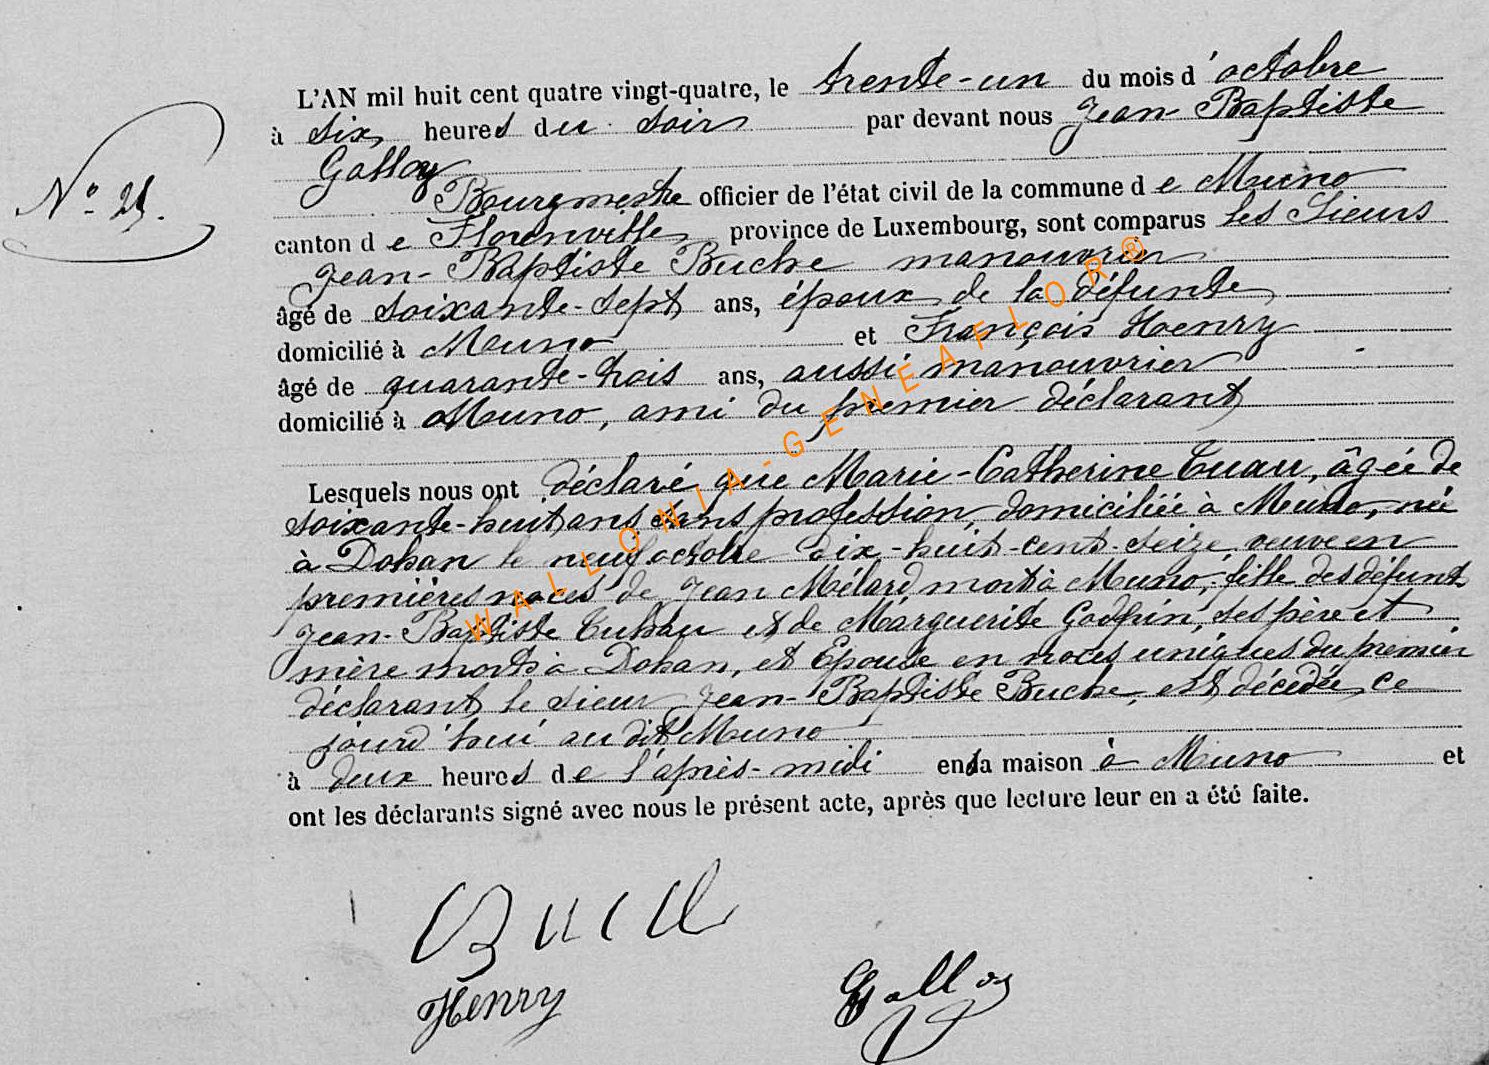 L'AN mil huit cent quatre vingt-quatre, le trente-un du mois d'octobre
à six heures du soir par devant nous Jean-Baptiste
Galloy
Bourgmestre officier de l'état civil de la commune de Muno
N° 25.
canton de Florenville, province de Luxembourg, sont comparus les Sieurs
Jean-Baptiste Buche manouvrier
âgé de soixante-sept ans, époux de la défunte
domicilié à Muno et François Henry
âgé de quarante-trois ans, aussi manouvrier
domicilié à Muno, ami du premier déclarant
Lesquels nous ont déclaré que Marie-Catherine Tuau, âgée de
soixante-huit ans sans profession, domiciliée à Muno, née
à Dohan le neuf octobre dix-huit-cent-seize, veuve en
premières noces de Jean Mélard mort à Muno, fille des défunts
Jean-Baptiste Tuhau et de Marguerite ses père et
mère morts à Dohan, et Epouse en noces uniques du premier
déclarant le sieur Jean-Baptiste Buche, est décédée, ce
jourd'hui au dit Muno
à deux heures de l'après-midi en sa maison à Muno et
ont les déclarants signé avec nous le présent acte, après que lecture leur en a été faite.
Henry
Galloy
WALLONIA-GENEAFLOR®